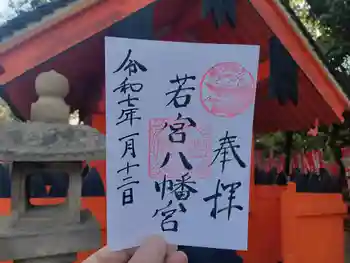 奉拝
若宮八幡宮
令和七年一月十二日